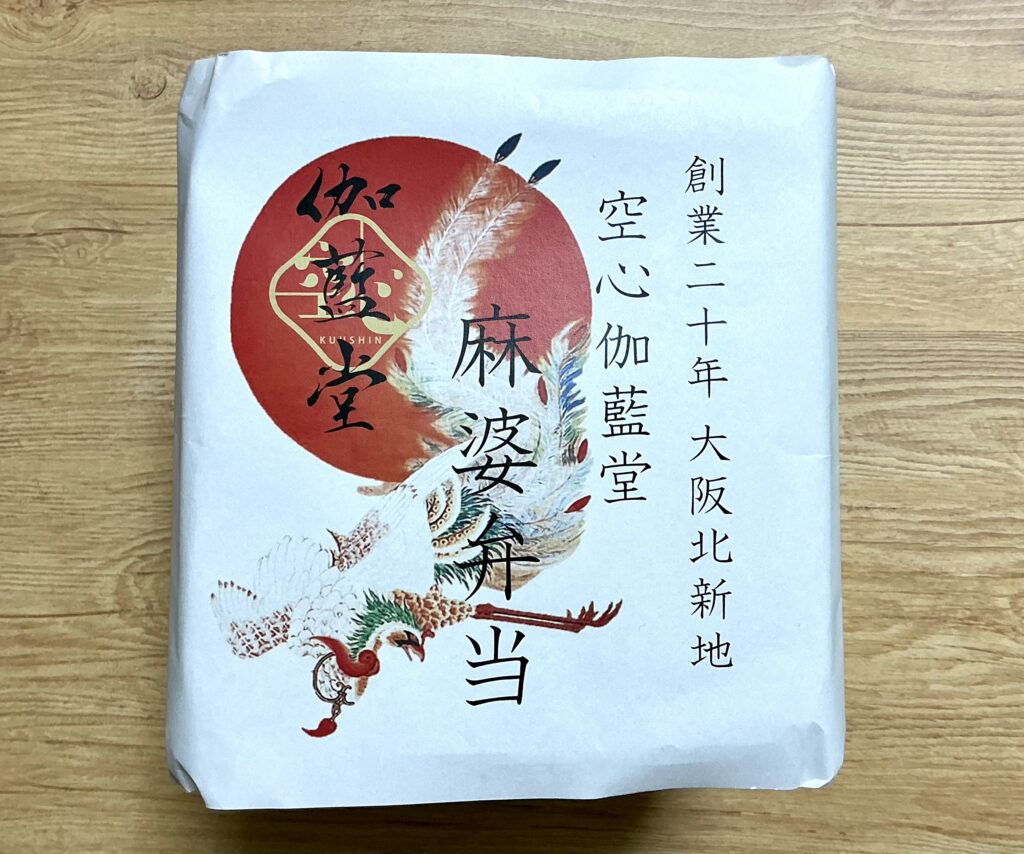 創業二十年 大阪北新地
空心伽藍堂
麻婆弁当
伽藍堂
KUUSHIN